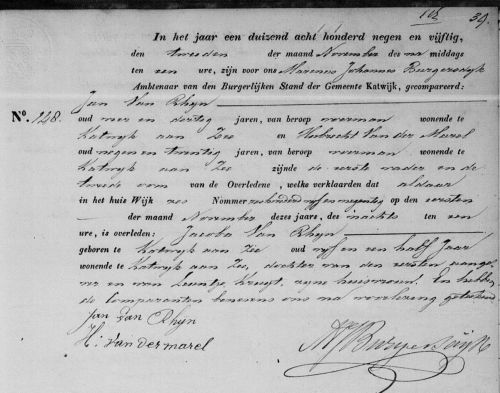 39.
In het jaar een duizend acht honderd negen en vijftig,
den tweeden der maand November des na middags
ten een ure, zijn voor ons Marinus Johannes Burgersdijk
Ambtenaar van den Burgerlijken Stand der Gemeente Katwijk, gecompareerd:
Jan Van Rhijn
No. 128.
oud vier en dertig jaren, van beroep zeeman wonende te
Katwijk aan Zee en Huibrecht Van der Marel
oud negen en twintig jaren, van beroep zeeman wonende te
Katwijk aan Zee zijnde de eerste vader en de
tweede oom van de Overledene, welke verklaarden dat aldaar
in het huis Wijk Nommer op den eersten
der maand November dezes jaars, des nachts ten een
ure, is overleden: Jacoba Van Rhijn
geboren te Katwijk aan Zee oud en een half jaar
wonende te Katwijk aan Zee, dochter van den eersten aange-
ver en van Kruyt, zijne huisvrouw. En hebben
de comparanten benevens ons na voorlezing geteekend
Jan van Rhijn
H: van der marel
MJBurgersdijk